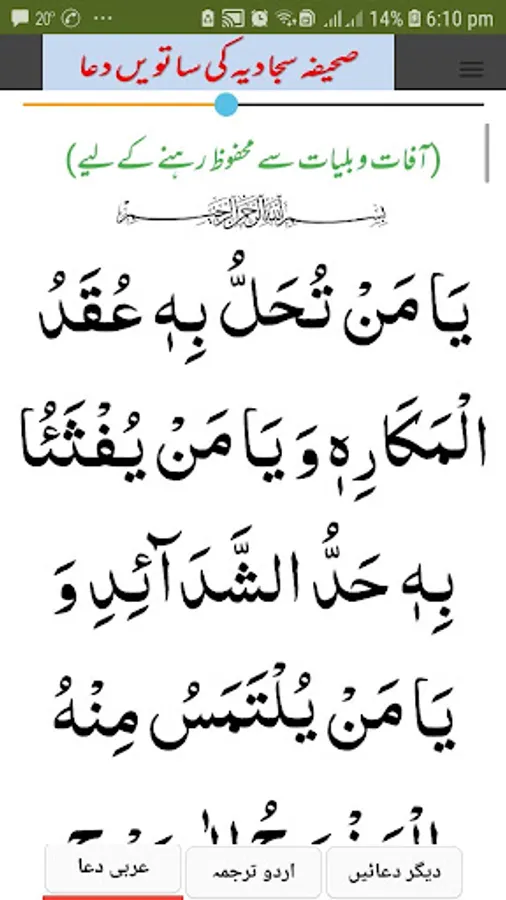 20° ... 14% 6:10 pm
صحیفہ سجادیہ کی ساتویں دعا
(آفات و بلیات سے محفوظ رہنے کے لیے)
بسم اللہ الرحمن الرحیم
یَا مَنْ تُحَلُّ بِهٖ عُقَدُ
الْمَكَارِهِ وَ یَا مَنْ یُفْثَئُا
بِهٖ حَدُّ الشَّدَآئِدِ وَ
یَا مَنْ یُلْتَمَسُ مِنْهُ
عربی دعا
اردو ترجمہ
دیگر دعائیں